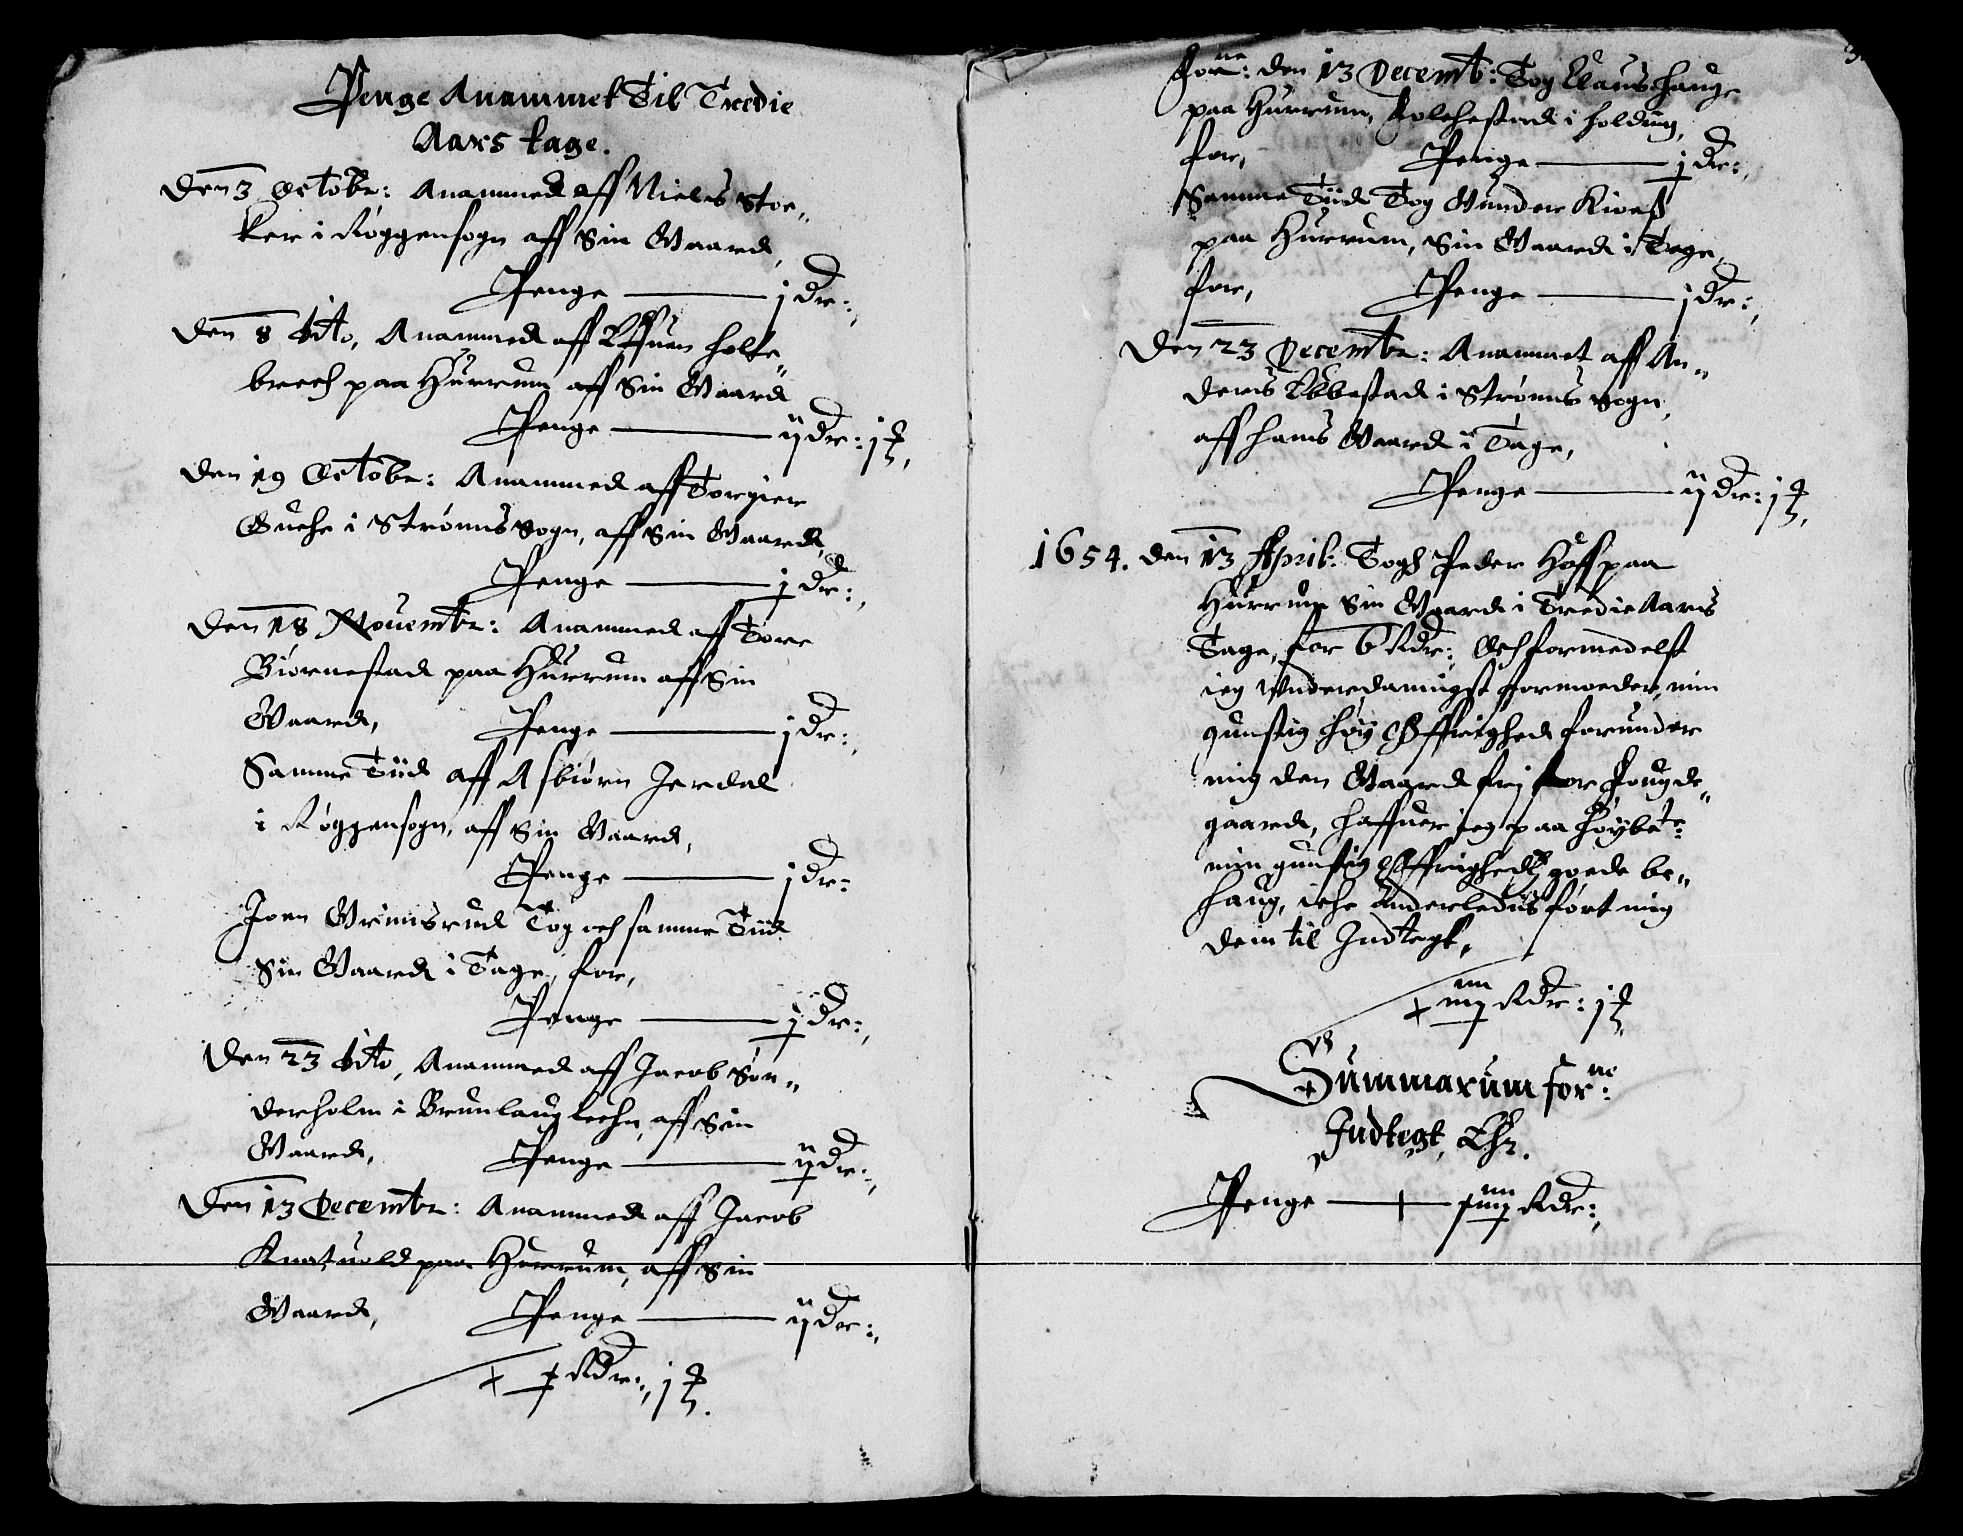 Penge Anammet Til Tredie
Aars tage.
Den 3 Octobr: Anammed aff Niels Stoe„
ker i Røggensogn aff Sin Gaard,
Penge — j dr:,
Den 8 dito, Anammed aff Effuen Holte„
brech paa Hurrum aff Sin Gaard
Penge — ij dr: j ₰,
Den 19 Octobr: Anammed aff Torgier
Guehe i Strømsogn, aff Sin Gaard,
Penge — j dr:,
Den 18 Nouembr: Anammed aff Tore
Biørnestad paa Hurrum aff Sin
Gaard, Penge — j dr:,
Samme Tiid aff Asbiørn Jerdal
i Røggensogn, aff Sin Gaard,
Penge — j dr:
Joen Grimsrud Tog och samme Tiid
Sin Gaard i Tage, for,
Penge — j dr:,
Den 23 dito, Anammed aff Jacob Søn„
derholm i Brunlaug leehn, aff Sin
Gaard, Penge — ij dr:,
Den 13 Decembr: Anammed aff Jacob
Knatuold paa Hurrum, aff Sin
Gaard, Penge — ij dr:,
Rdr:, j ₰.
Forne: den 13 Decemb: Tog Claus Hauge
paa Hurrum, i holdung,
for, Penge — j dr:,
Samme Tiid Tog Gunder Kioeß
paa Hurrum, Sin Gaard i Tage,
for, Penge — j dr:,
Den 23 Decembr: Anammet aff An„
ders Ebbestad i Strøms Sogn,
aff hans Gaard i Tage,
Penge — ij dr: j ₰,
1654. den 13 April: Togh Peder Hoff paa
Hurrum Sin Gaard i Tredie Aars
Tage, for 6 Rdr:, Och formedelst
ieg Vnderdanigst formoeder, min
gunstig høy Øffrighed forunder
mig den Gaard frj for Fougde„
gaard, haffuer ieg paa høybete:
min gunstig Øffrigheds goede be„
haug, iche Anderledis ført mig
dem til Indtegt,
Rdr: j ₰,
Summarum forne:
Indtegt, Er.
Penge — Rdr:,